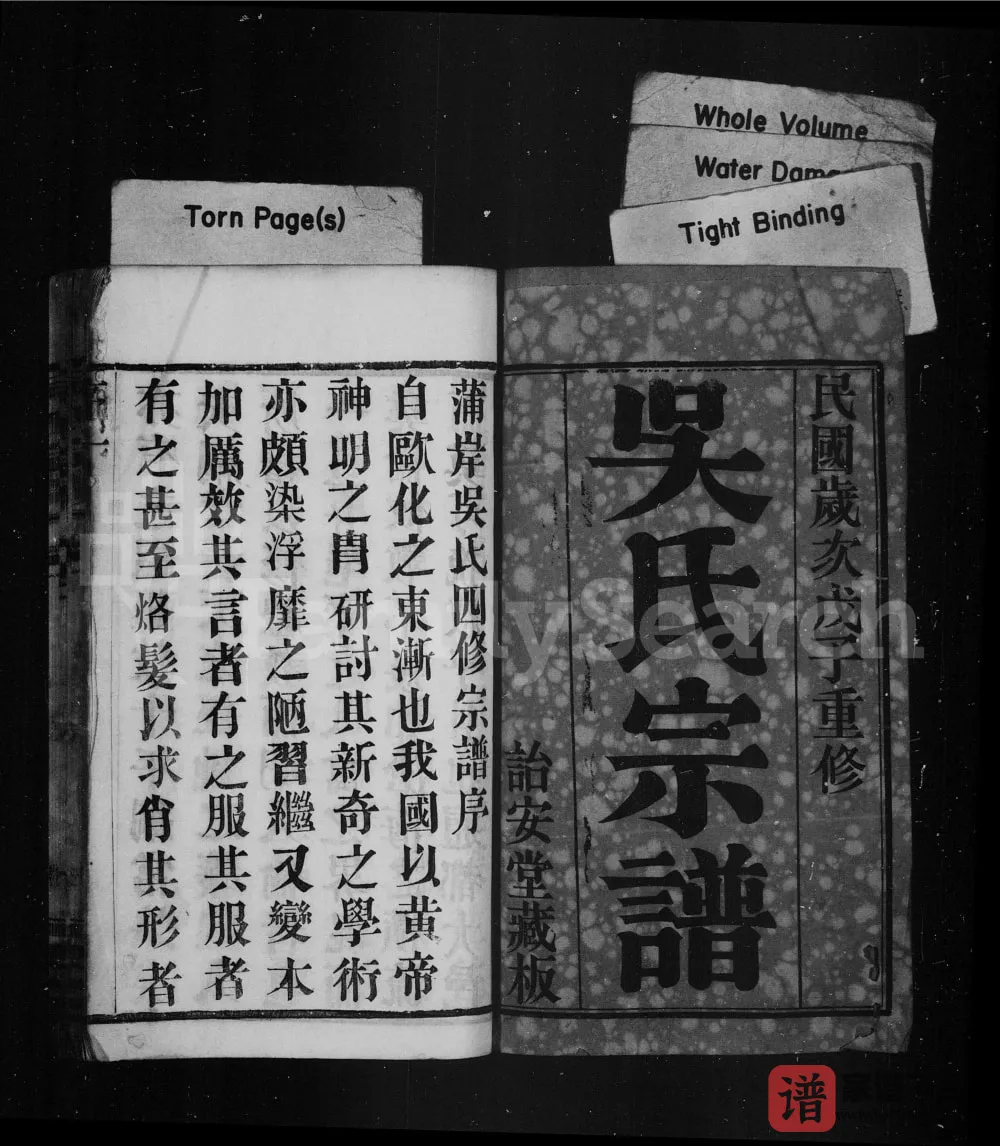 Whole Volume
Water Dam
Tight Binding
Torn Page(s)
民國歲次戊子重修
吳氏宗譜
詒安堂藏板
蒲岸吳氏四修宗譜序
自歐化之東漸也我國以黃帝
神明之胄研討其新奇之學術
亦頗染浮靡之陋習繼又變本
加厲效其言者有之服其服者
有之甚至烙髮以求肖其形者
譜